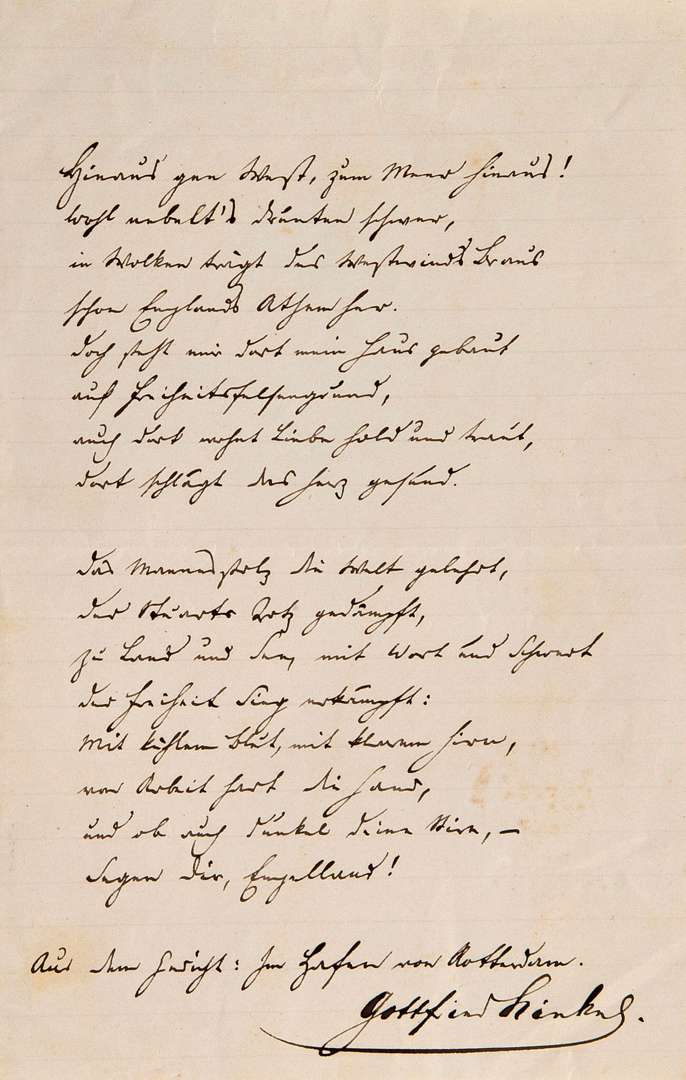 Hinaus gen West, zum Meer hinaus!
wohl nebelt's drunten schwer,
in Wolken trägt des Westwinds Braus
schon Englands Athem her.
doch steht mir dort mein Haus gebaut
auf Freiheitsfelsengrund,
auch dort wohnt Liebe hold und traut,
dort schlägt das Herz gesund.
das Mannesstolz die Welt gelehrt,
der Stuarts Trotz gedämpft,
zu Land und See, mit Wort und Schwert
der Freiheit Sieg erkämpft:
Mit kühlem Blut, mit klarem Hirn,
von Arbeit hart die Hand,
und ob auch dunkel deine Stirn, –
Segen dir, Engelland!
Aus dem Gedicht: Im Hafen von Rotterdam.
Gottfried Kinkel.